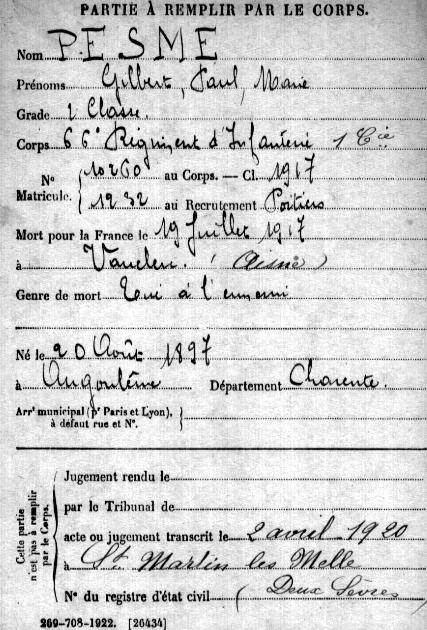 PARTIE À REMPLIR PAR LE CORPS.
Nom PESME
Prénoms Gilbert, Paul, Marie
Grade 2 Classe.
Corps 66e Régiment d'Infanterie 1 Cie
No 10260 au Corps. — Cl. 1917
Matricule. 1232 au Recrutement Poitiers
Mort pour la France le 19 Juillet 1917
à Vauclerc. (Aisne)
Genre de mort Tué à l'ennemi
Né le 20 Août 1897
à Angoulême Département Charente.
Arrt municipal (pr Paris et Lyon),
à défaut rue et No.
Cette partie
n'est pas à remplir
par le Corps.
Jugement rendu le
par le Tribunal de
acte ou jugement transcrit le 2 avril 1920
à St. Martin les Melle
No du registre d'état civil (Deux Sèvres)
269-708-1922. [26434]